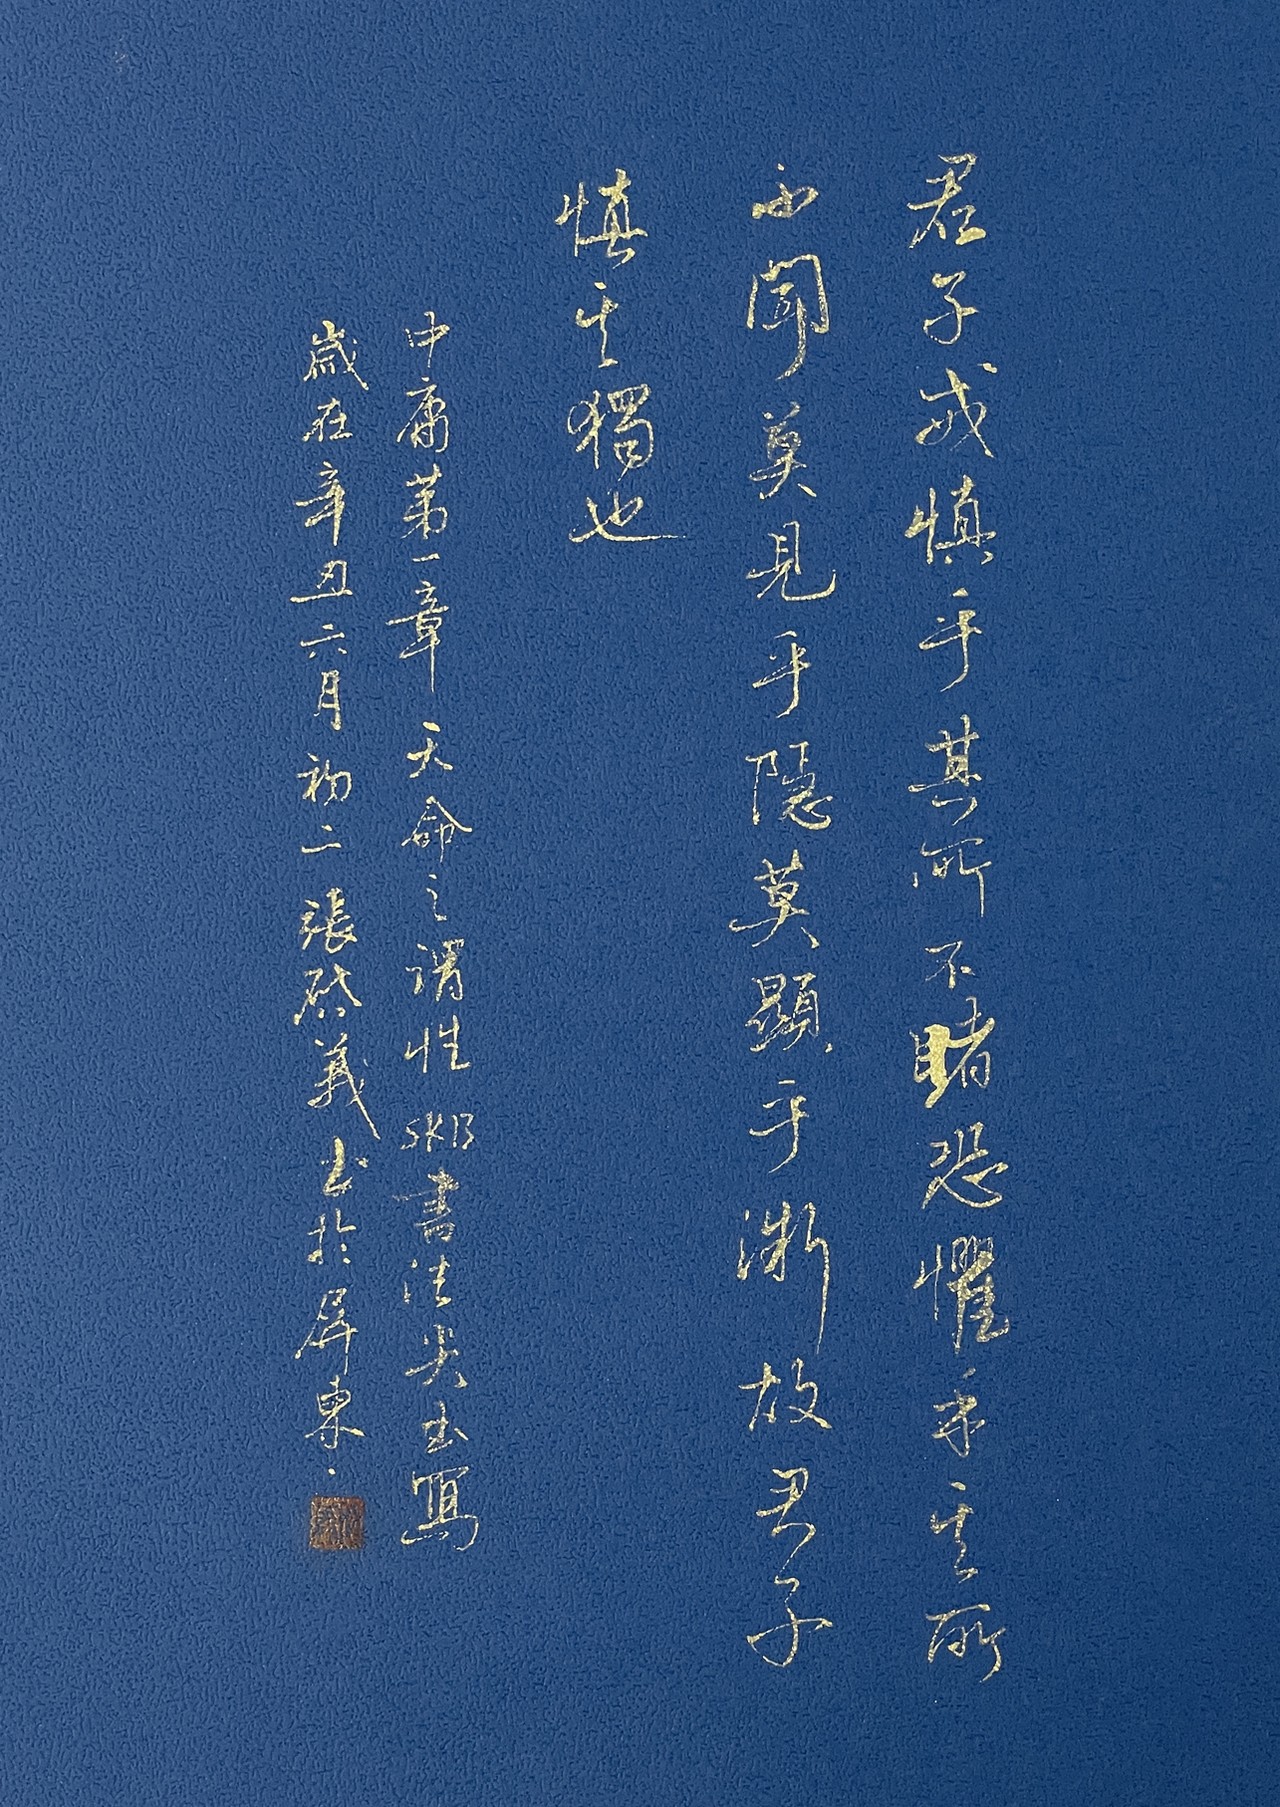 君子戒慎乎其所不睹恐懼乎其所
不聞莫見乎隱莫顯乎微故君子
慎其獨也
中庸第一章 天命之謂性 SKB書法尖書寫
歲在辛丑六月初二 張啓義書於屏東